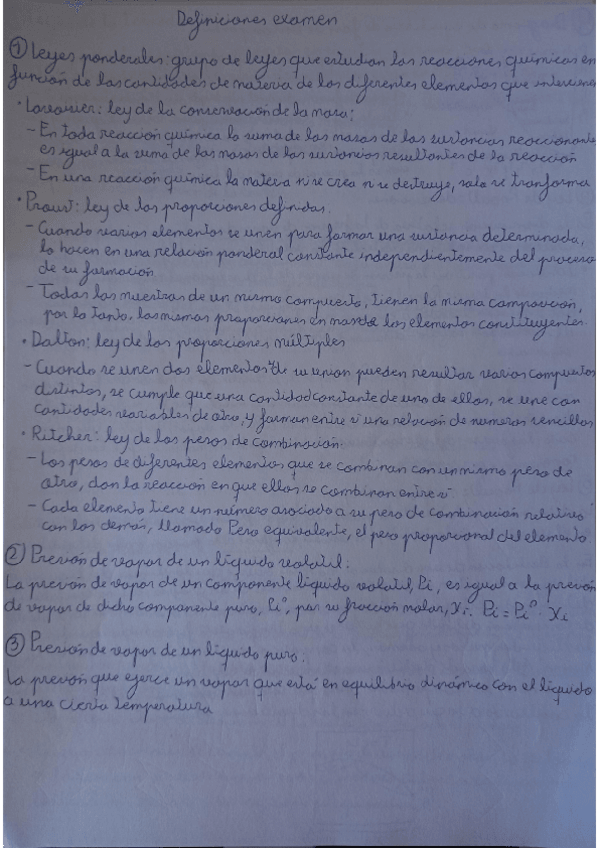 Definiciones examen
① Leyes ponderales: grupo de leyes que estudian las reacciones químicas en
función de las cantidades de materia de los diferentes elementos que intervienen
· Lavoisier: ley de la conservación de la masa:
- En toda reacción química la suma de las masas de las sustancias reaccionantes
es igual a la suma de las masas de las sustancias resultantes de la reacción
- En una reacción química la materia ni se crea ni se destruye, solo se transforma
· Proust: ley de las proporciones definidas.
- Cuando varios elementos se unen para formar una sustancia determinada,
lo hacen en una relación ponderal constante independientemente del proceso
de su formación
- Todas las muestras de un mismo compuesto, tienen la misma composición,
por lo tanto, las mismas proporciones en masa de los elementos constituyentes.
· Dalton: ley de las proporciones múltiples
- Cuando se unen dos elementos y de su unión pueden resultar varios compuestos
distintos, se cumple que una cantidad constante de uno de ellos, se une con
cantidades variables de otro, y forman entre sí una relación de números sencillos
· Ritcher: ley de los pesos de combinación.
- Los pesos de diferentes elementos que se combinan con un mismo peso de
otro, dan la reacción en que ellos se combinan entre sí
- Cada elemento tiene un número asociado a su peso de combinación relativo
con los demás, llamado Peso equivalente, el peso proporcional del elemento.
② Presión de vapor de un líquido volátil:
La presión de vapor de un componente líquido volátil, Pi, es igual a la presión
de vapor de dicho componente puro, Pi°, por su fracción molar, Xi. Pi = Pi° · Xi
③ Presión de vapor de un líquido puro:
La presión que ejerce un vapor que está en equilibrio dinámico con el líquido
a una cierta temperatura